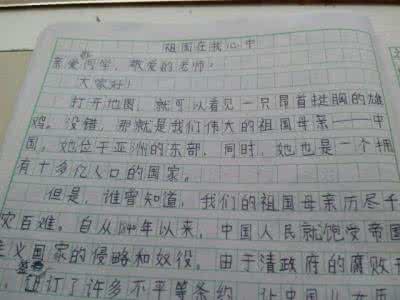 祖国在我心中
亲爱的同学,敬爱的老师:
大家好!
打开地图,就可以看见一只昂首挺胸的雄
鸡。没错,那就是我们伟大的祖国母亲——中
国。她位于亚洲的东部,同时,她也是一个拥
有十多亿人口的国家。
但是,谁曾知道,我们的祖国母亲历尽千
灾百难。自从1840年以来,中国人民就饱受帝国
主义国家的侵略和奴役。由于清政府的腐败
订了许多不平等条约,让中国